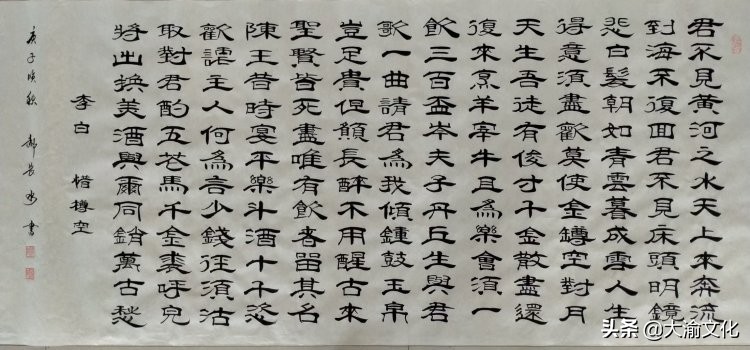 君不見黃河之水天上來奔流
到海不復回君不見床頭明鏡
悲白髮朝如青雲暮成雪人生
得意須盡歡莫使金鐏空對月
天生吾徒有俊才千金散盡還
復來烹羊宰牛且為樂會須一
飲三百盃岑夫子丹丘生與君
歌一曲請君為我傾鍾鼓玉帛
豈足貴但願長醉不用醒古來
聖賢皆死盡唯有飲者留其名
陳王昔時宴平樂斗酒十千恣
歡謔主人何為言少錢徑須沽
取對君酌五花馬千金裘呼兒
將出換美酒與爾同銷萬古愁
李白 惜樽空
庚子晚秋 書
头条 @大渝文化